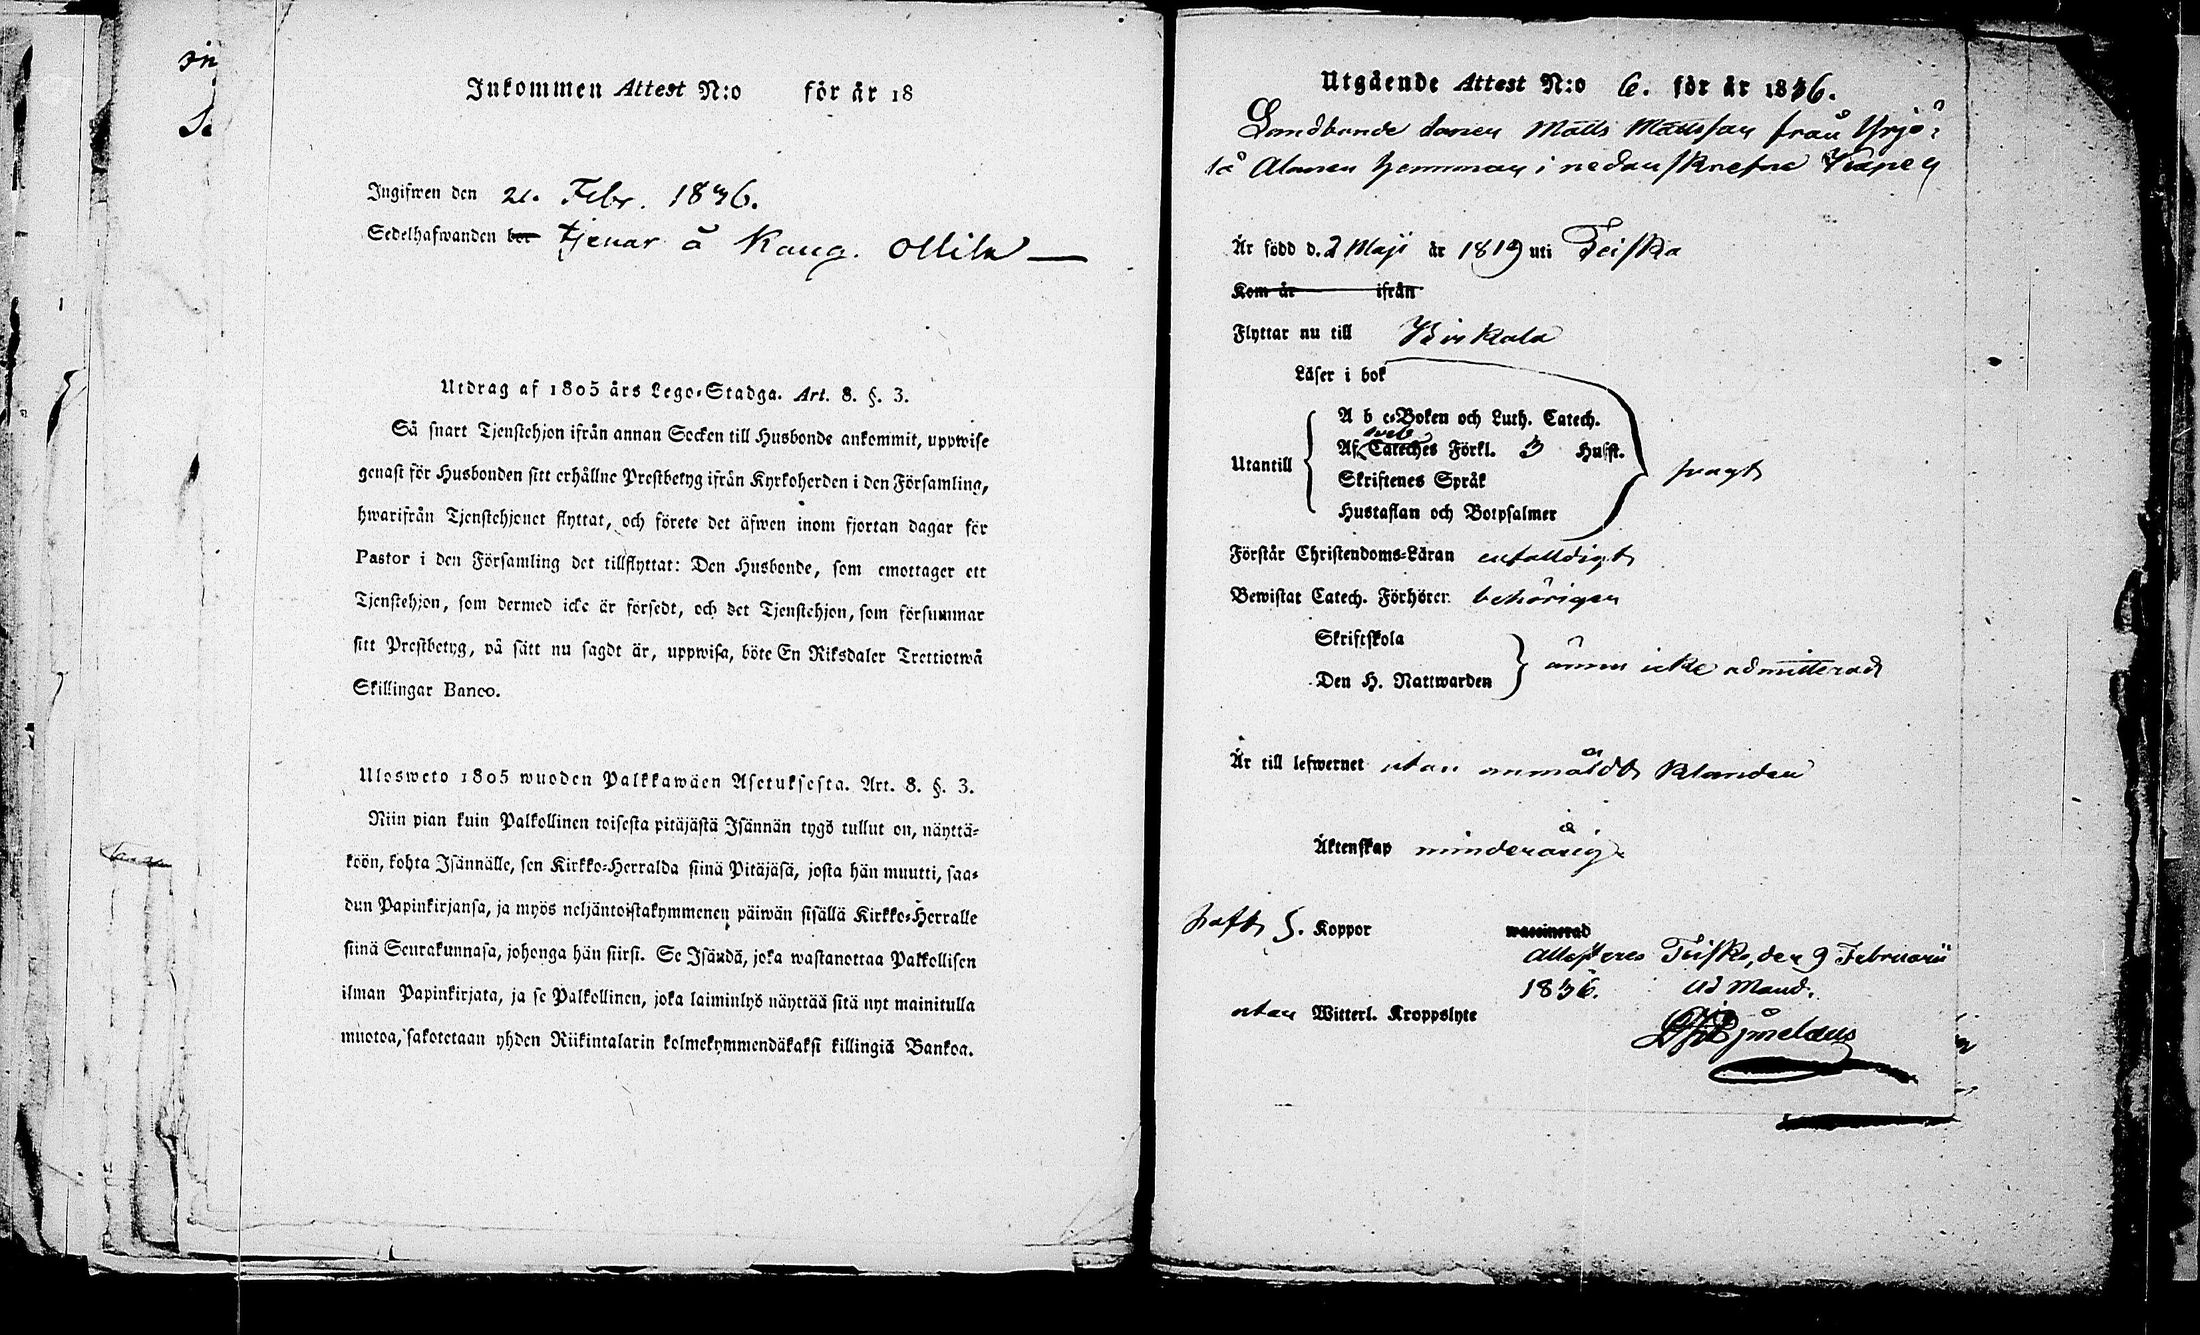 Inkommen Attest N:o för år 18
Ingifwen den 21. Febr. 1836.
Sedelhafwanden bor tjenar å Kaug. Ollila
Utdrag af 1805 års Lego-Stadga. Art. 8. §. 3.
Så snart Tjenstehjon ifrån annan Socken till Husbonde ankommit, uppwise
genast för Husbonden sitt erhållne Prestbetyg ifrån Kyrkoherden i den Församling,
hwarifrån Tjenstehjonet flyttat, och förete det äfwen inom fjortan dagar för
Pastor i den Församling det tillflyttat: Den Husbonde, som emottager ett
Tjenstehjon, som dermed icke är försedt, och det Tjenstehjon, som försummar
sitt Prestbetyg, på sätt nu sagdt är, uppwisa, böte En Riksdaler Trettiotwå
Skillingar Banco.
Ulosweto 1805 wuoden Palkkawäen Asetuksesta. Art. 8. §. 3.
Niin pian kuin Palkollinen toisesta pitäjästä Isännän tygö tullut on, näyttä-
köön, kohta Isännälle, sen Kirkko-Herralda siinä Pitäjäsä, josta hän muutti, saa-
dun Papinkirjansa, ja myös neljäntoistakymmenen päiwän sisällä Kirkko-Herralle
siinä Seurakunnasa, johonga hän siirsi. Se Isändä, joka wastanottaa Palkollisen
ilman Papinkirjata, ja se Palkollinen, joka laiminlyö näyttää sitä nyt mainitulla
muotoa, sakotetaan yhden Riikintalarin kolmekymmendäkaksi killingiä Bankoa.
Utgående Attest N:o 6. för år 1836.
Landbonde sonen Matts Mattsson från Yrjö-
lä Alanen hemman i nedanskrefne
Är född d. 2 Maji år 1819 uti Teisko
Kom år ifrån
Flyttar nu till Birkala
Läser i bok
Utantill
A b c-Boken och Luth. Catech.
Af Sveb Cateches Förkl. 3 Hufst.
Skriftenes Språk
Hustaflan och Botpsalmer
svagt
Förstår Christendoms-Läran enfalldigt
Bewistat Catech. Förhören behörigen
Skriftskola
Den H. Nattwarden
ännu icke admitterad
Är till lefwernet utan anmäldt klander
Äktenskap minderårig
haft s. Koppor waccinerad
Attesteres Teisko, den 9 Februarii
1836. Ad Mand.
utan Witterl. Kroppslyte